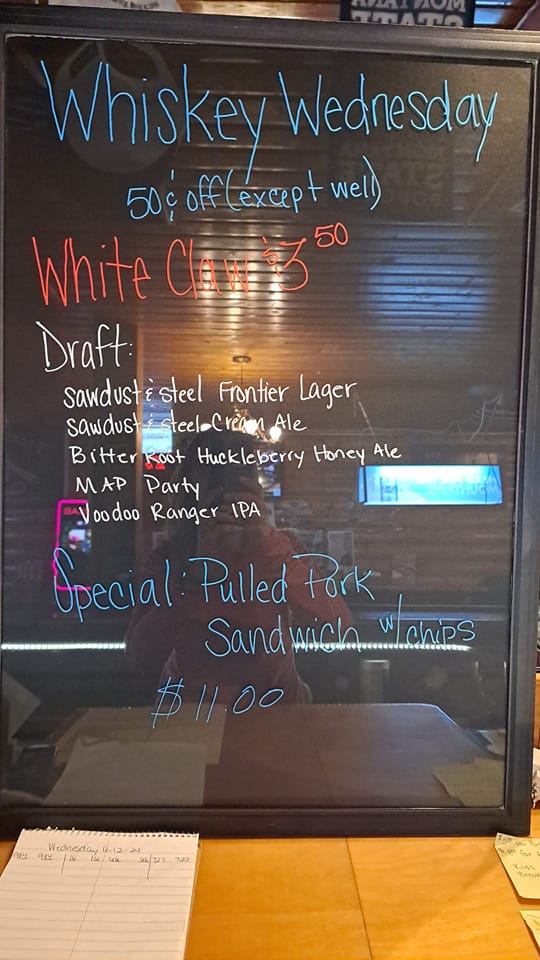 MONTANA
STATE
Whiskey Wednesday
50¢ off (except well)
White Claw $3.50
Draft:
Sawdust & Steel Frontier Lager
Sawdust & Steel Cream Ale
Bitter Root Huckleberry Honey Ale
MAP Party
Voodoo Ranger IPA
Special: Pulled Pork
Sandwich w/chips
$11.00
Wednesday 6-12-24